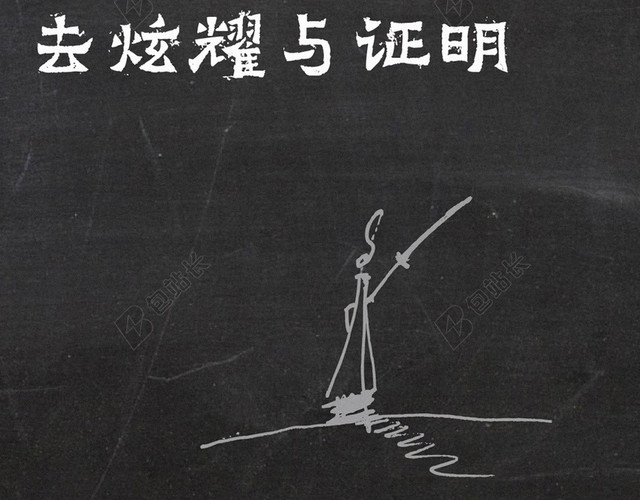 去炫耀与证明
包站长
包站长
包站长
包站长